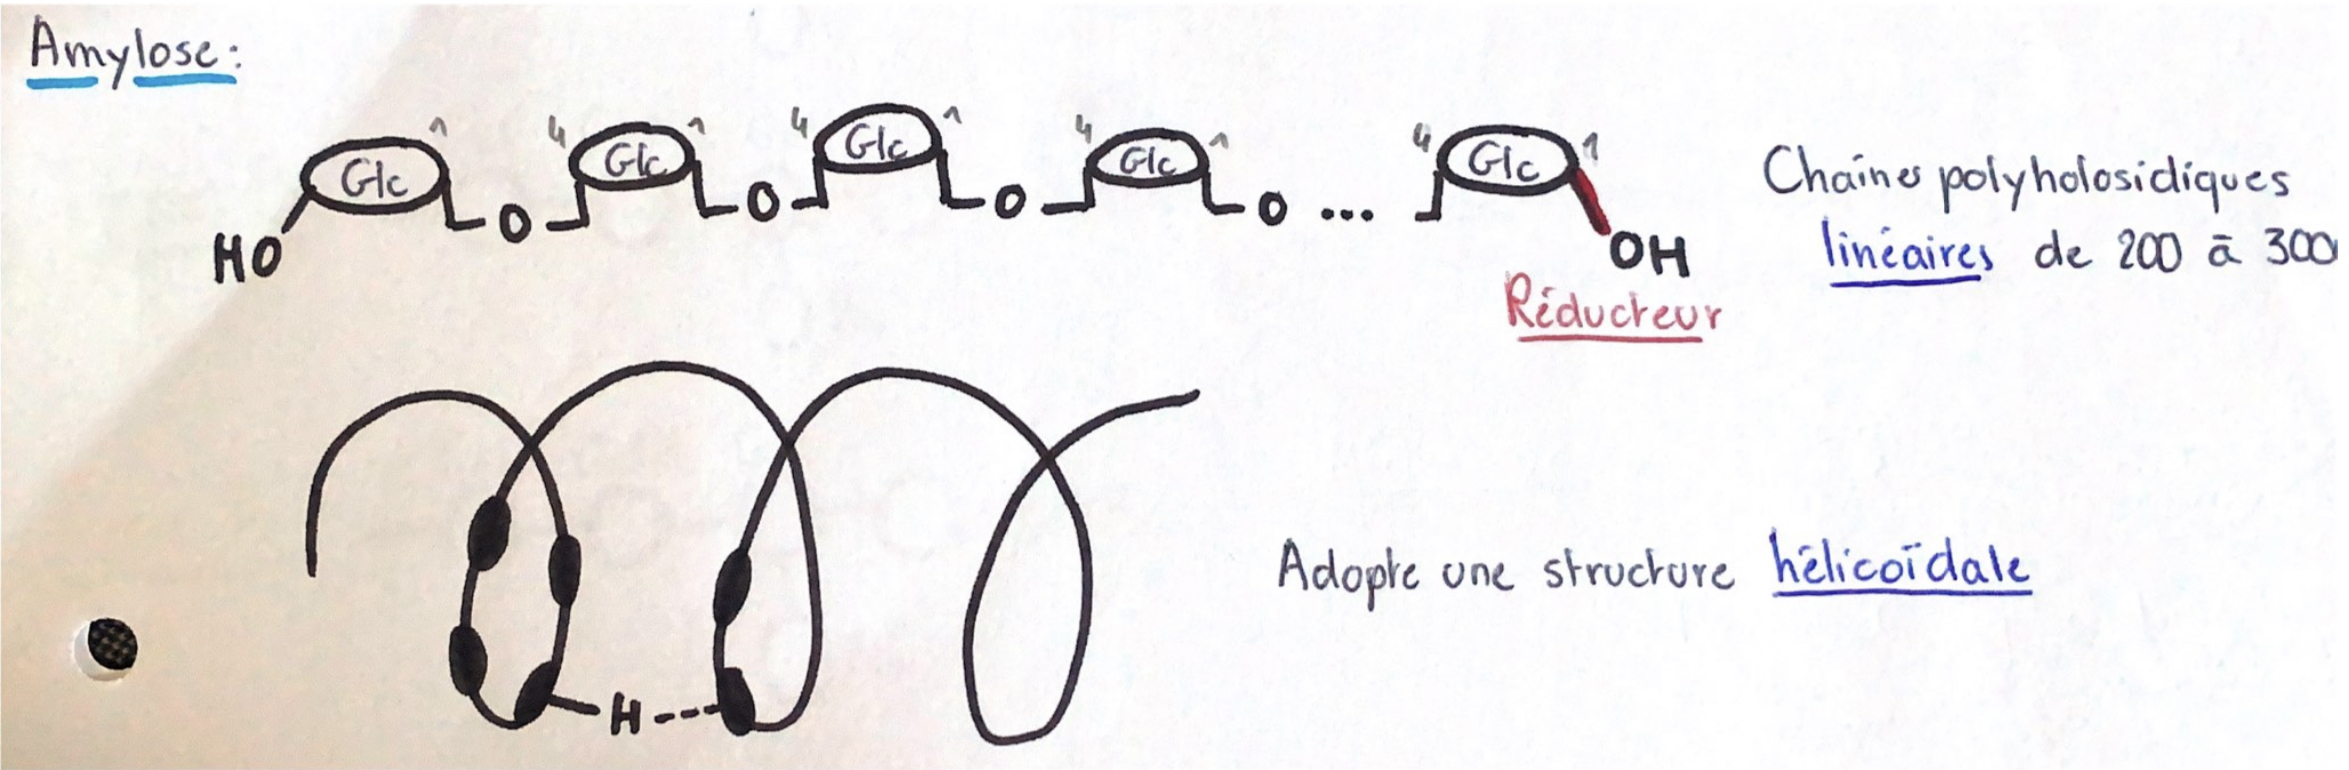 Amylose:
4 1 4 1 4 1 4 1 4 1
Glc Glc Glc Glc Glc
HO O O O O ... OH
Réducteur
Chaînes polyholosidiques
linéaires de 200 à 300
H
Adopte une structure hélicoïdale